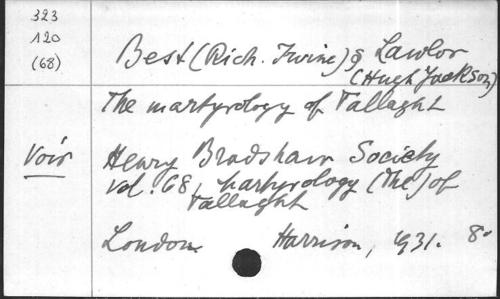 323
120
(68)
Best (Rich. Irvine) & Lawlor
(Hugh Jackson)
The martyrology of Tallaght
Voir
Henry Bradshaw Society
vol. 68, Martyrology (The) of
Tallaght
London Harrison, 1931. 8°